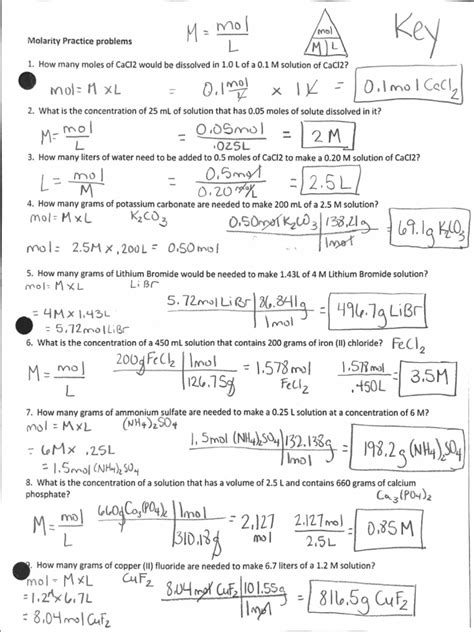 M = mol / L
mol
M | L
Key
Molarity Practice problems
1. How many moles of CaCl2 would be dissolved in 1.0 L of a 0.1 M solution of CaCl2?
mol = M x L = 0.1 mol / L x 1 L = 0.1 mol CaCl2
2. What is the concentration of 25 mL of solution that has 0.05 moles of solute dissolved in it?
M = mol / L = 0.05mol / .025L = 2 M
3. How many liters of water need to be added to 0.5 moles of CaCl2 to make a 0.20 M solution of CaCl2?
L = mol / M = 0.5mol / 0.20 mol/L = 2.5 L
4. How many grams of potassium carbonate are needed to make 200 mL of a 2.5 M solution?
mol = M x L K2CO3 0.50mol K2CO3 | 138.21g / 1mol = 69.1g K2CO3
mol = 2.5M x .200L = 0.50mol
5. How many grams of Lithium Bromide would be needed to make 1.43L of 4 M Lithium Bromide solution?
mol = M x L LiBr
5.72mol LiBr | 86.841g / 1mol = 496.7g LiBr
= 4M x 1.43L
= 5.72mol LiBr
6. What is the concentration of a 450 mL solution that contains 200 grams of iron (II) chloride? FeCl2
M = mol / L 200g FeCl2 | 1mol / 126.75g = 1.578mol FeCl2 1.578mol / .450L = 3.5M
7. How many grams of ammonium sulfate are needed to make a 0.25 L solution at a concentration of 6 M?
mol = M x L (NH4)2SO4
= 6M x .25L 1.5mol (NH4)2SO4 | 132.138g / 1mol = 198.2g (NH4)2SO4
= 1.5mol (NH4)2SO4
8. What is the concentration of a solution that has a volume of 2.5 L and contains 660 grams of calcium
phosphate? Ca3(PO4)2
M = mol / L 660g Ca3(PO4)2 | 1mol / 310.18g = 2.127 mol 2.127mol / 2.5L = 0.85M
How many grams of copper (II) fluoride are needed to make 6.7 liters of a 1.2 M solution?
mol = M x L CuF2 8.04mol CuF2 | 101.55g / 1mol = 816.5g CuF2
= 1.2M x 6.7L
= 8.04mol CuF2